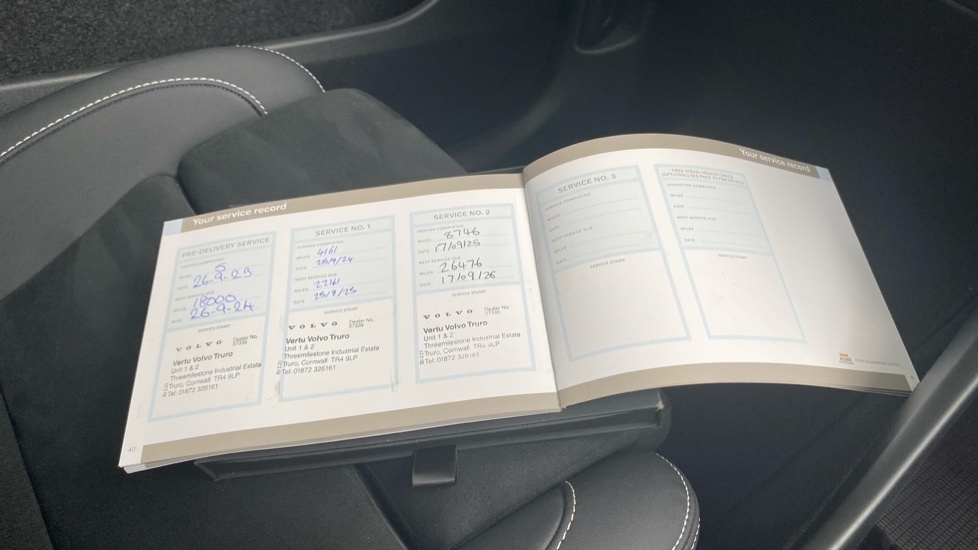 Your service record
PRE-DELIVERY SERVICE
MILES 8
DATE 26-9-23
NEXT SERVICE DUE
MILES 18000
DATE 26-9-24
SERVICE STAMP
VOLVO Dealer No.
Vertu Volvo Truro
Unit 1 & 2
Threemilestone Industrial Estate
Truro, Cornwall TR4 9LP
Tel: 01872 326161
40
SERVICE NO. 1
SERVICE COMPLETED
MILES 4161
DATE 25/9/24
NEXT SERVICE DUE
MILES 22161
DATE 25/9/25
SERVICE STAMP
VOLVO Dealer No.
Vertu Volvo Truro
Unit 1 & 2
Threemilestone Industrial Estate
Truro, Cornwall TR4 9LP
Tel: 01872 326161
SERVICE NO. 2
SERVICE COMPLETED
MILES 8746
DATE 17/09/25
NEXT SERVICE DUE
MILES 26476
DATE 17/09/26
SERVICE STAMP
VOLVO Dealer No.
Vertu Volvo Truro
Unit 1 & 2
Threemilestone Industrial Estate
Truro, Cornwall TR4 9LP
Tel: 01872 326161
Your service record
SERVICE NO. 3
SERVICE COMPLETED
MILES
DATE
NEXT SERVICE DUE
MILES
DATE
SERVICE STAMP
FREE VISUAL HEALTH CHECK
MILES
DATE
NEXT SERVICE DUE
MILES
DATE
SERVICE STAMP